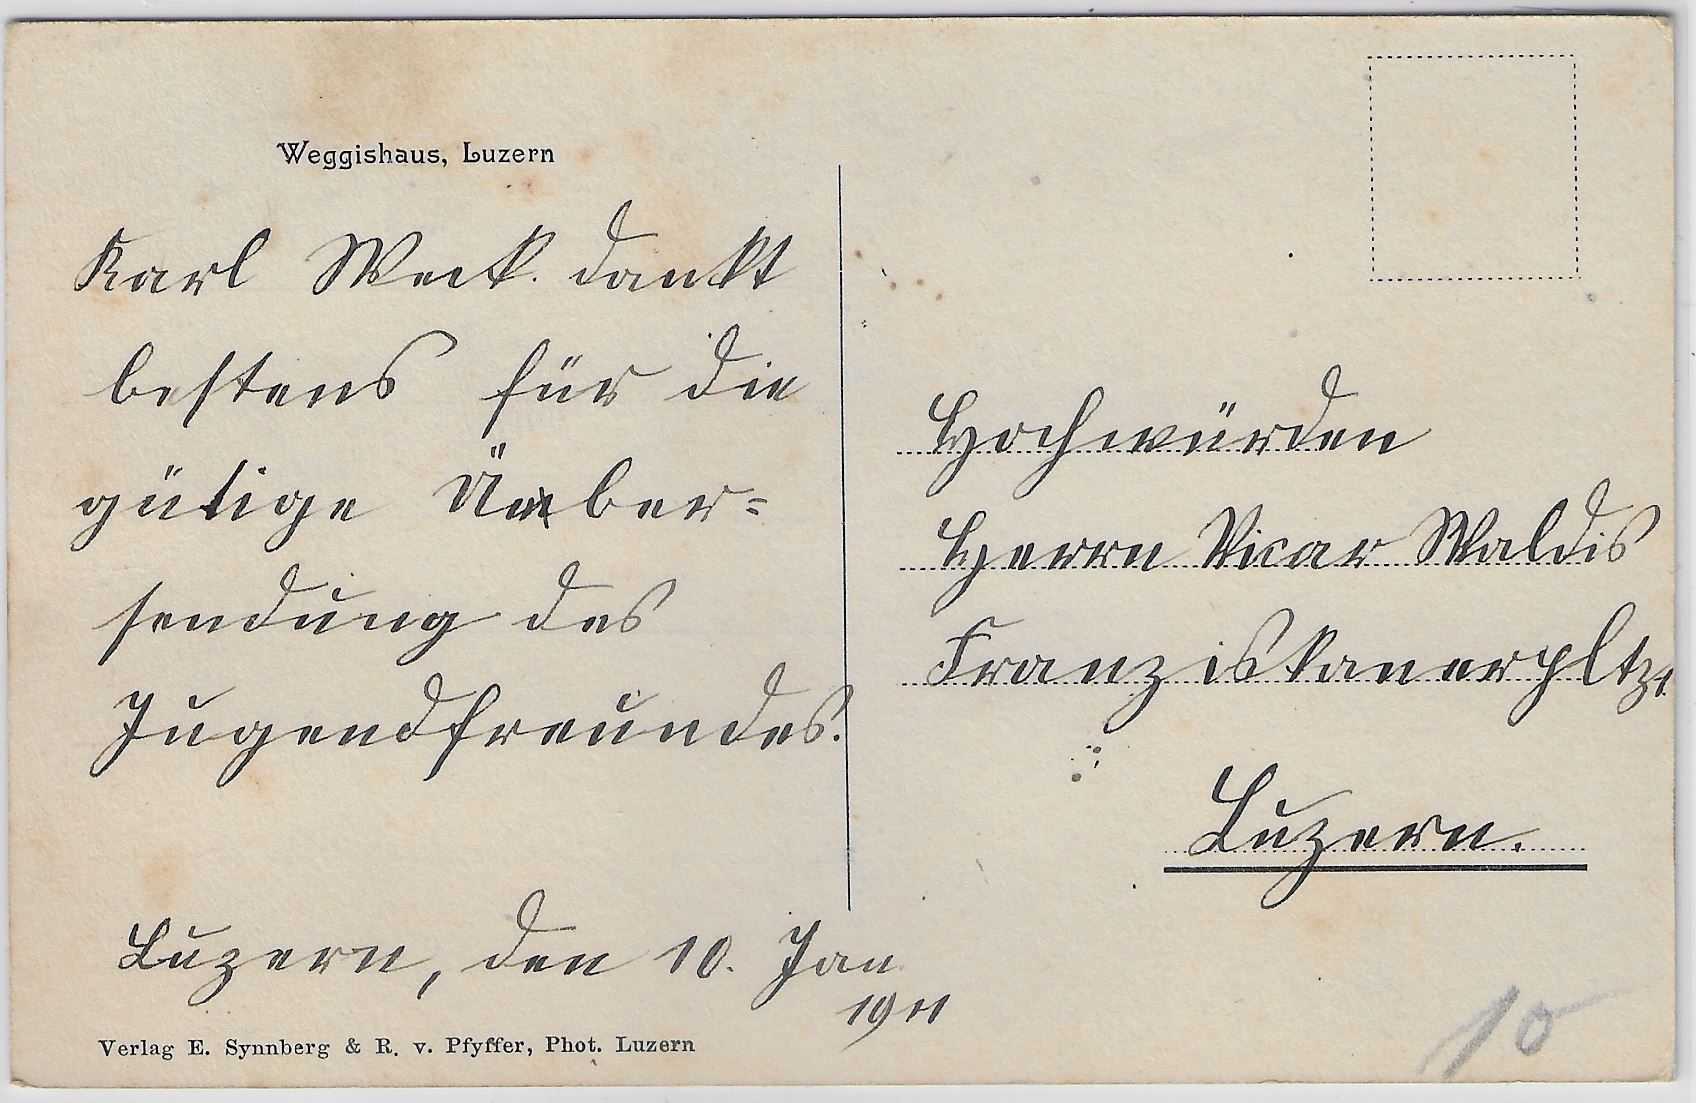 Weggishaus, Luzern
Karl Weck. dankt
bestens für die
gütige Über=
sendung des
Jugendfreundes.
Luzern, den 10. Jan
1911
Verlag E. Synnberg & R. v. Pfyffer, Phot. Luzern
Hochwürden
Herrn Vicar Waldis
Franziskanerpltz.
Luzern.
10